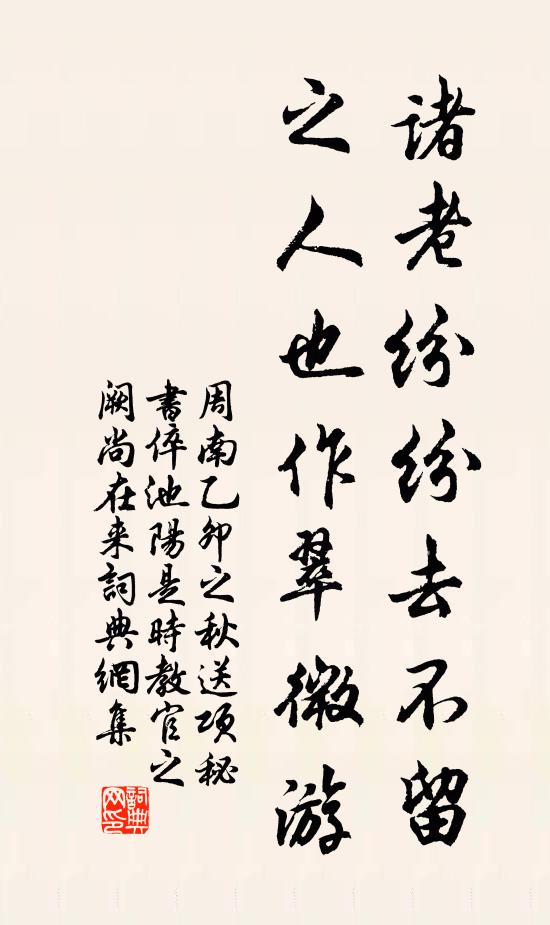 諸老紛紛去不留
之人也作翠微游
周南乙卯之秋送項秘
書倅池陽是時教官之
闕尚在来詞典網集
詞典
网印